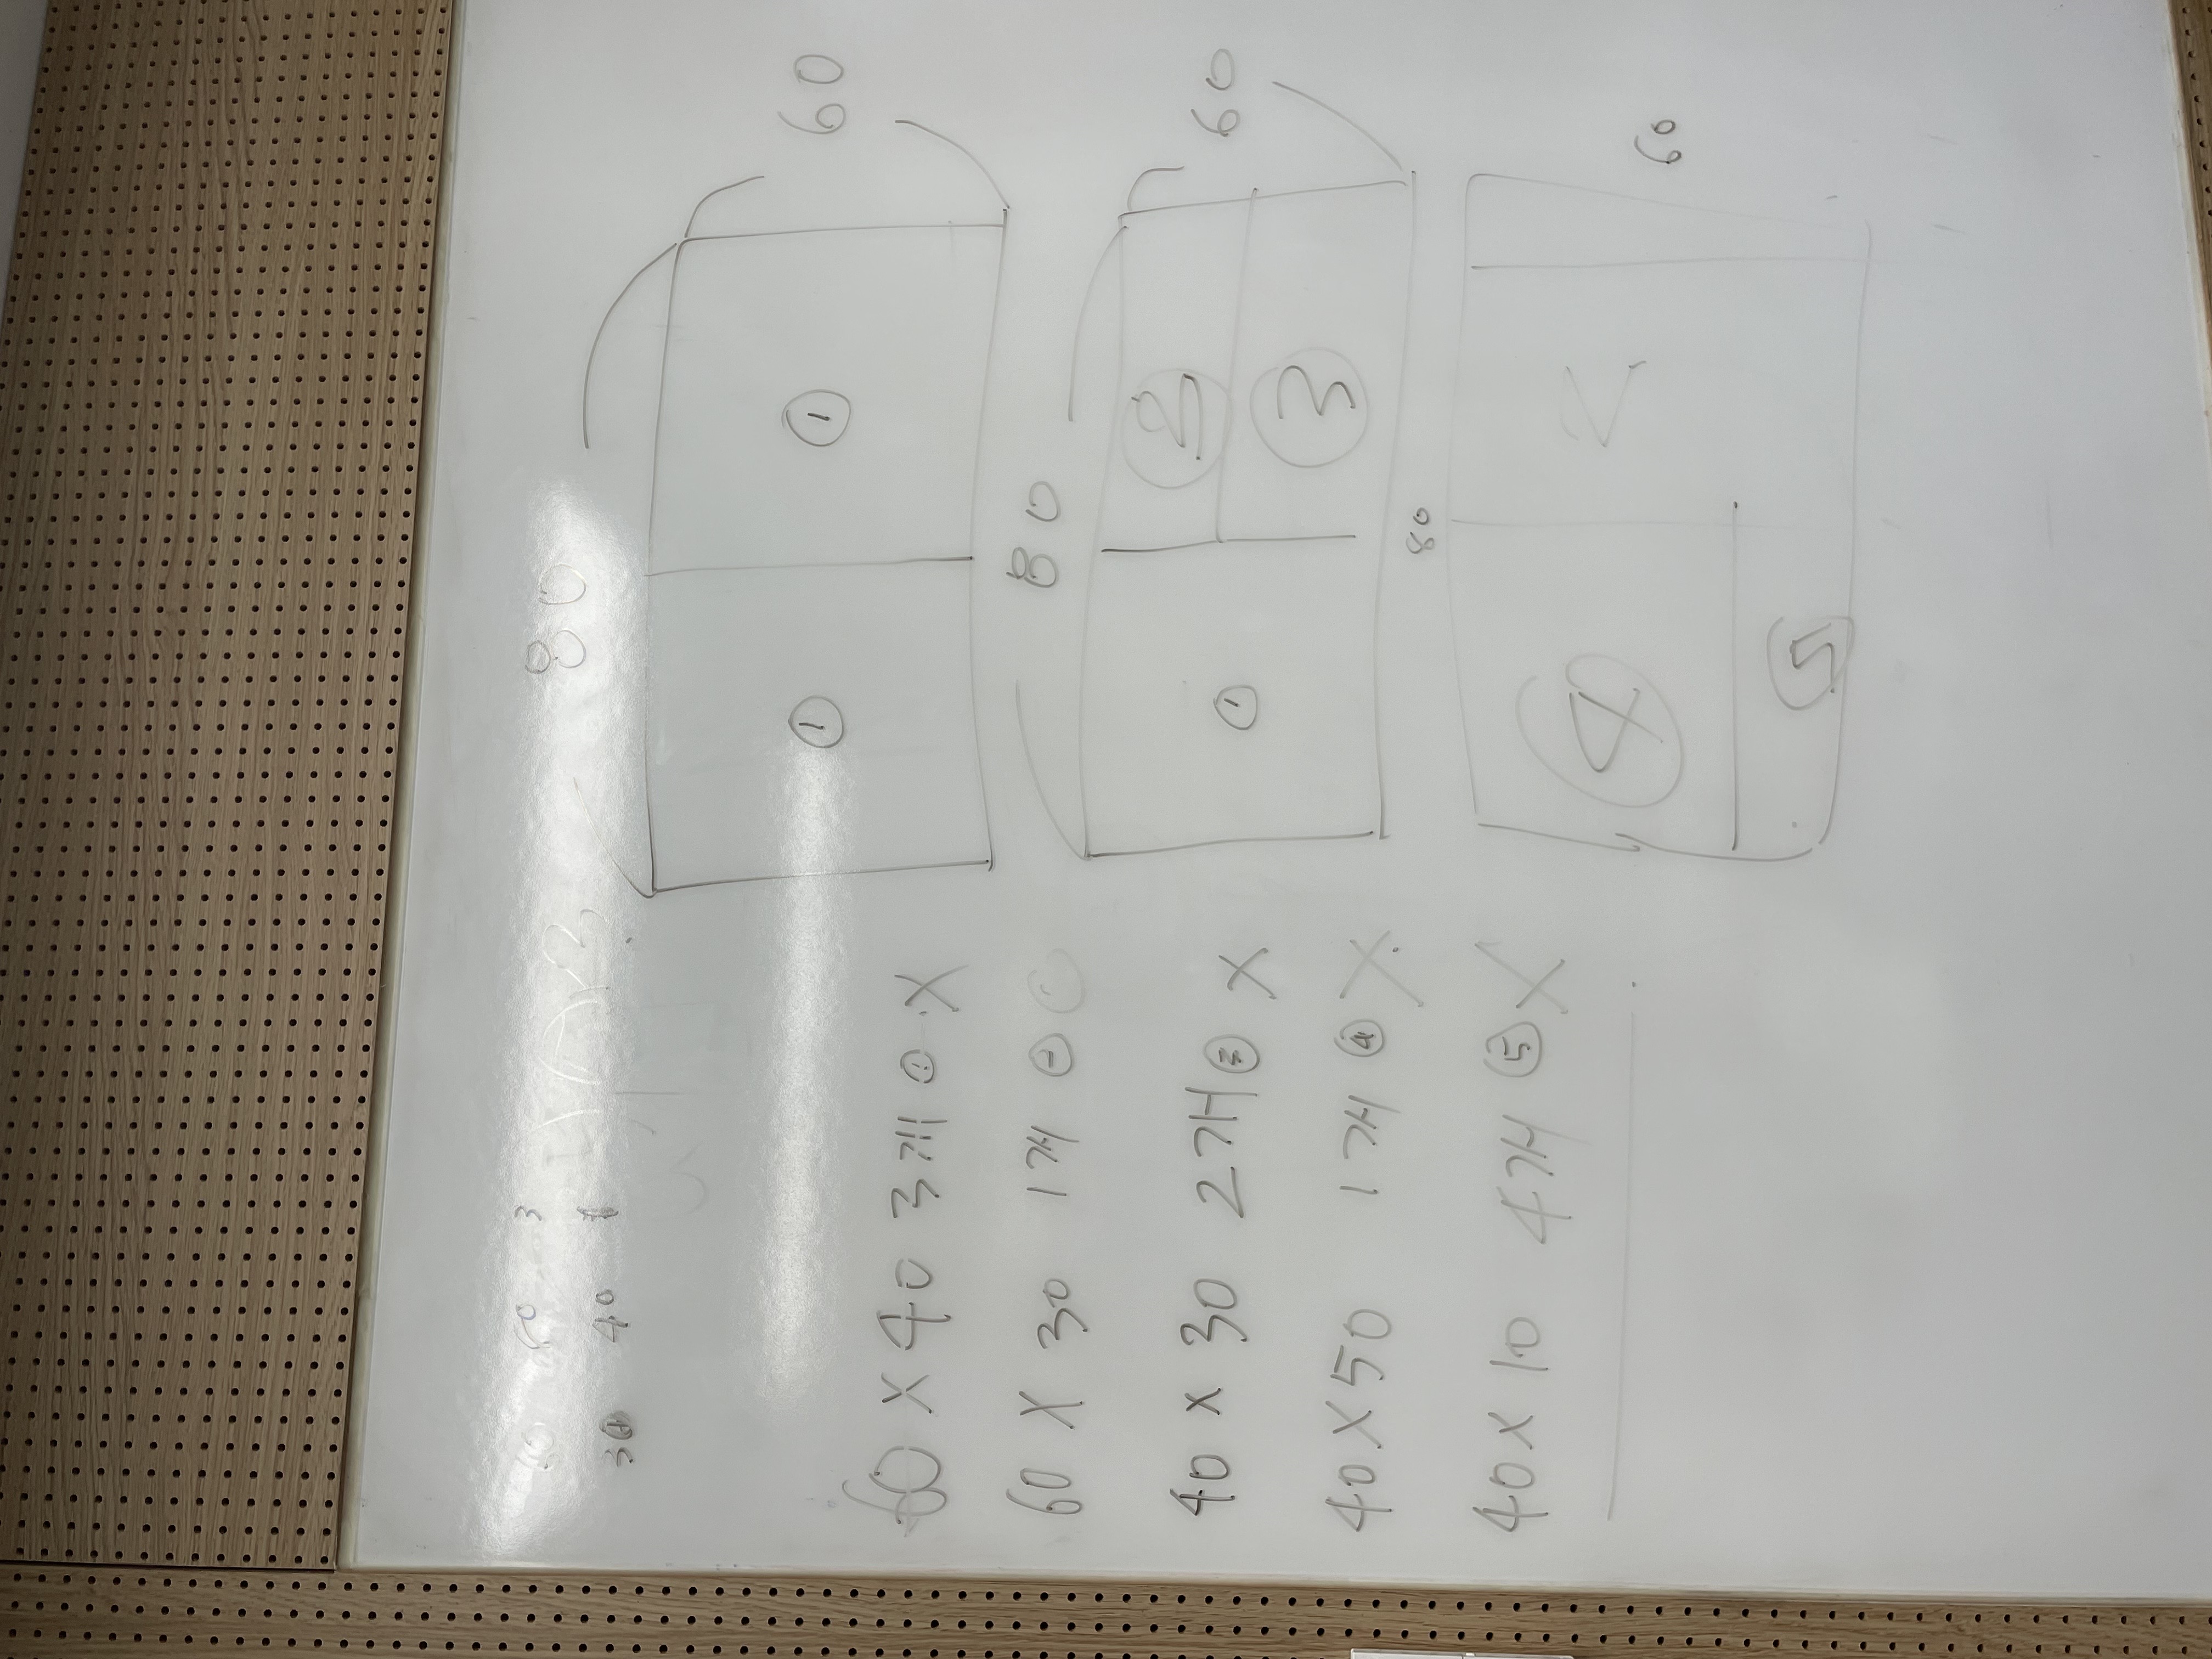 60 3
30 40 1
60 x 40 3개 ① x
60 x 30 1개 ②
40 x 30 2개 ③ x
40 x 50 1개 ④ x
40 x 10 4개 ⑤ x
80
① ①
60
80
① ②
③
60
80
④ 2
⑤
60